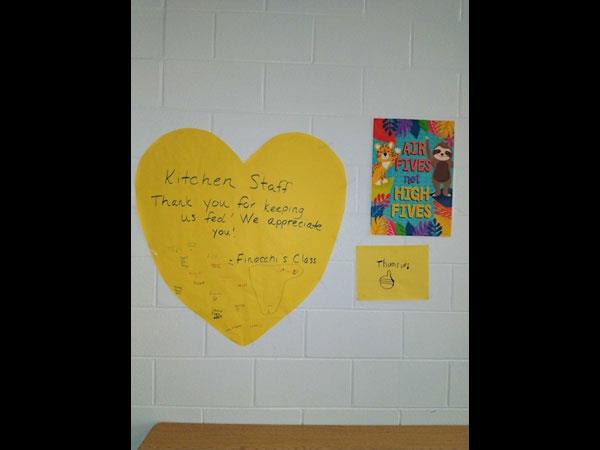 Kitchen Staff
Thank you for keeping
us fed! We appreciate
you!
- Finocchi's Class
AIR
FIVES
not
HIGH
FIVES